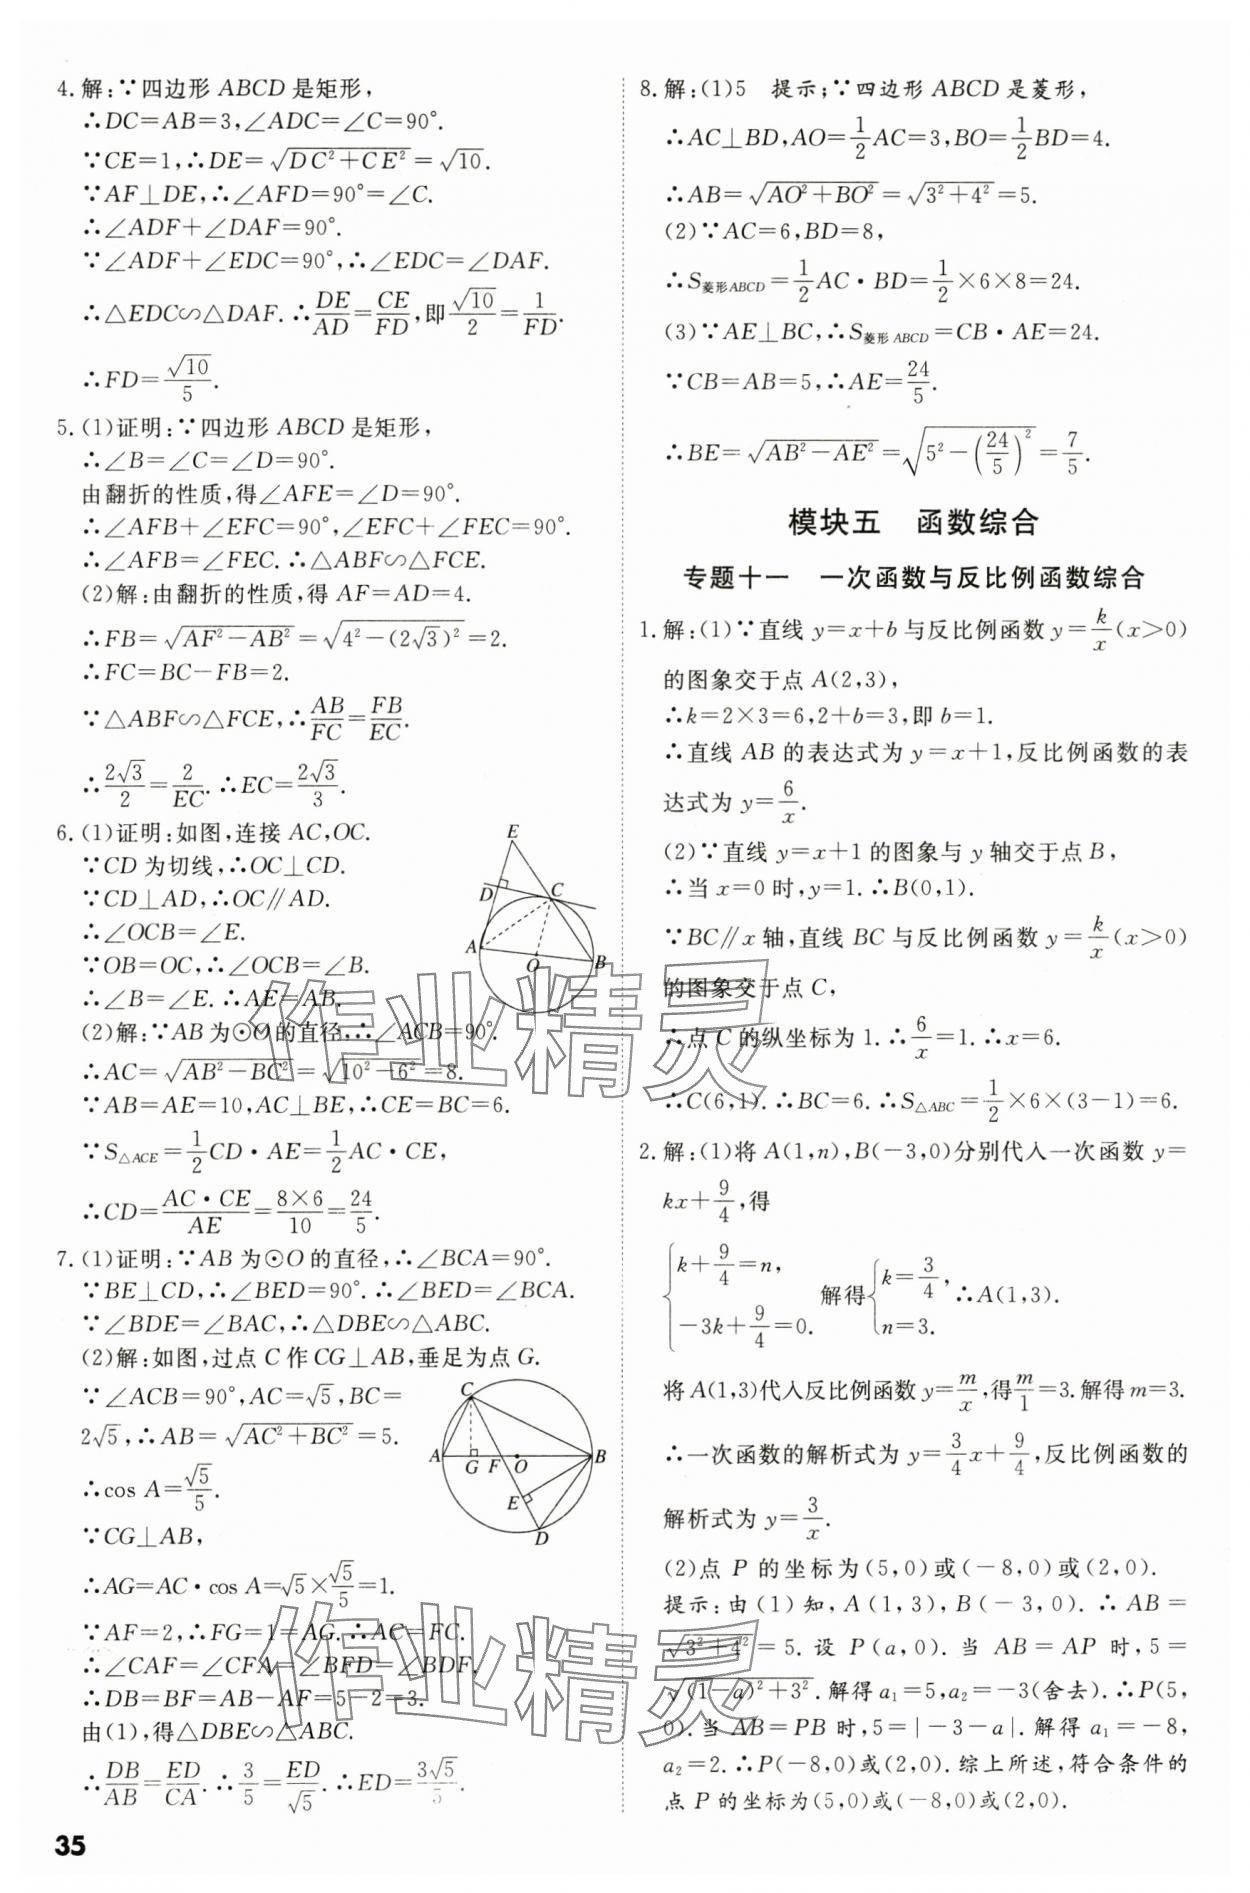 4. 解：∵四边形 ABCD 是矩形，
∴DC=AB=3，∠ADC=∠C=90°.
∵CE=1，∴DE=√(DC²+CE²)=√10.
∵AF⊥DE，∴∠AFD=90°=∠C.
∴∠ADF+∠DAF=90°.
∵∠ADF+∠EDC=90°，∴∠EDC=∠DAF.
∴△EDC∽△DAF. ∴DE/AD=CE/FD，即√10/2=1/FD.
∴FD=√10/5.
5. (1)证明：∵四边形 ABCD 是矩形，
∴∠B=∠C=∠D=90°.
由翻折的性质，得∠AFE=∠D=90°.
∴∠AFB+∠EFC=90°，∠EFC+∠FEC=90°.
∴∠AFB=∠FEC. ∴△ABF∽△FCE.
(2)解：由翻折的性质，得 AF=AD=4.
∴FB=√(AF²-AB²)=√(4²-(2√3)²)=2.
∴FC=BC-FB=2.
∵△ABF∽△FCE，∴AB/FC=FB/EC.
∴2√3/2=2/EC. ∴EC=2√3/3.
6. (1)证明：如图，连接 AC，OC.
∵CD 为切线，∴OC⊥CD.
∵CD⊥AD，∴OC∥AD.
∴∠OCB=∠E.
∵OB=OC，∴∠OCB=∠B.
∴∠B=∠E. ∴AE=AB.
(2)解：∵AB 为⊙O 的直径，∴∠ACB=90°.
∴AC=√(AB²-BC²)=√(10²-6²)=8.
∵AB=AE=10，AC⊥BE，∴CE=BC=6.
∵S△ACE=1/2 CD·AE=1/2 AC·CE，
∴CD=AC·CE/AE=8×6/10=24/5.
E
D
C
A
O
B
7. (1)证明：∵AB 为⊙O 的直径，∴∠BCA=90°.
∵BE⊥CD，∴∠BED=90°. ∴∠BED=∠BCA.
∵∠BDE=∠BAC，∴△DBE∽△ABC.
(2)解：如图，过点 C 作 CG⊥AB，垂足为点 G.
∵∠ACB=90°，AC=√5，BC=
2√5，∴AB=√(AC²+BC²)=5.
∴cos A=√5/5.
∵CG⊥AB，
∴AG=AC·cos A=√5×√5/5=1.
∵AF=2，∴FG=1=AG. ∴AC=FC.
∴∠CAF=∠CFA=∠BFD=∠BDF.
∴DB=BF=AB-AF=5-2=3.
由(1)，得△DBE∽△ABC.
∴DB/AB=ED/CA. ∴3/5=ED/√5. ∴ED=3√5/5.
C
A
G
F
O
B
E
D
35
8. 解：(1)5 提示；∵四边形 ABCD 是菱形，
∴AC⊥BD，AO=1/2 AC=3，BO=1/2 BD=4.
∴AB=√(AO²+BO²)=√(3²+4²)=5.
(2)∵AC=6，BD=8，
∴S菱形ABCD=1/2 AC·BD=1/2×6×8=24.
(3)∵AE⊥BC，∴S菱形ABCD=CB·AE=24.
∵CB=AB=5，∴AE=24/5.
∴BE=√(AB²-AE²)=√(5²-(24/5)²)=7/5.
模块五 函数综合
专题十一 一次函数与反比例函数综合
1. 解：(1)∵直线 y=x+b 与反比例函数 y=k/x(x>0)
的图象交于点 A(2,3)，
∴k=2×3=6，2+b=3，即 b=1.
∴直线 AB 的表达式为 y=x+1，反比例函数的表
达式为 y=6/x.
(2)∵直线 y=x+1 的图象与 y 轴交于点 B，
∴当 x=0 时，y=1. ∴B(0,1).
∵BC∥x 轴，直线 BC 与反比例函数 y=k/x(x>0)
的图象交于点 C，
∴点 C 的纵坐标为 1. ∴6/x=1. ∴x=6.
∴C(6,1). ∴BC=6. ∴S△ABC=1/2×6×(3-1)=6.
2. 解：(1)将 A(1,n)，B(-3,0)分别代入一次函数 y=
kx+9/4，得
{k+9/4=n， -3k+9/4=0. 解得 {k=3/4， n=3. ∴A(1,3).
将 A(1,3)代入反比例函数 y=m/x，得m/1=3. 解得 m=3.
∴一次函数的解析式为 y=3/4 x+9/4，反比例函数的
解析式为 y=3/x.
(2)点 P 的坐标为(5,0)或(-8,0)或(2,0).
提示：由(1)知，A(1,3)，B(-3,0). ∴AB=
√(3²+4²)=5. 设 P(a,0). 当 AB=AP 时，5=
√((1-a)²+3²). 解得 a₁=5，a₂=-3(舍去). ∴P(5,
0). 当 AB=PB 时，5=|-3-a|. 解得 a₁=-8，
a₂=2. ∴P(-8,0)或(2,0). 综上所述，符合条件的
点 P 的坐标为(5,0)或(-8,0)或(2,0).
作业精灵
作业精灵